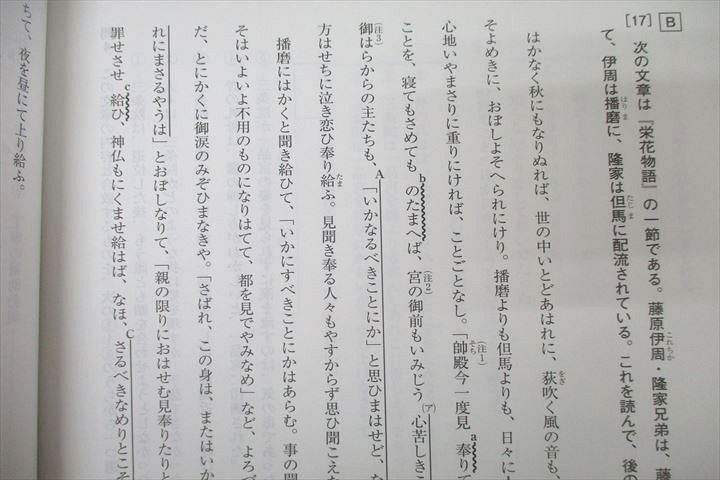 B
[17]
次の文章は『栄花物語』の一節である。藤原伊周・隆家兄弟は、藤
これちか
て、伊周は播磨に、隆家は但馬に配流されている。これを読んで、後の
はりま
たじま
はかなく秋にもなりぬれば、世の中いとどあはれに、荻吹く風の音も、
をぎ
そよめきに、おぼしよそへられにけり。播磨よりも但馬よりも、日々に人
心地いやまさりに重りにければ、ことごとなし。「帥殿今一度見奉りて
(注1)
そち
a
ことを、寝てもさめてものたまへば、宮の御前もいみじう心苦しきこ
b
(注2)
(ア)
御はらからの主たちも、「いかなるべきことにか」と思ひまはせど、な
(注3)
A
方はせちに泣き恋ひ奉り給ふ。見聞き奉る人々もやすからず思ひ聞こえた
たま
播磨にはかくと聞き給ひて、「いかにすべきことにかはあらむ。事の聞
そはいよいよ不用のものになりはてて、都を見でやみなめ」など、よろづ
だ、とにかくに御涙のみぞひまなきや。「さばれ、この身は、またはいか
れにまさるやうは」とおぼしなりて、「親の限りにおはせむ見奉りたりと
罪せさせ給ひ、神仏もにくませ給はば、なほ、さるべきなめりとこそ
c
C
ちて、夜を昼にて上り給ふ。